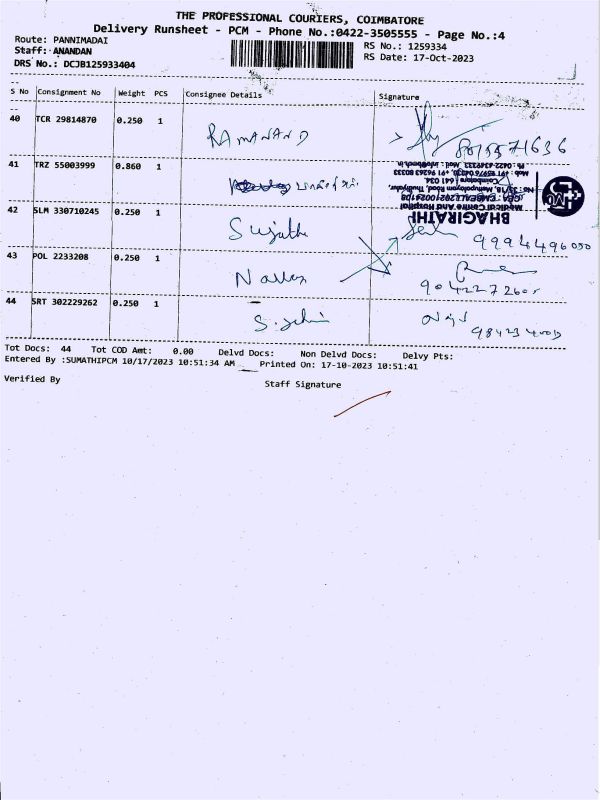 THE PROFESSIONAL COURIERS, COIMBATORE
Delivery Runsheet - PCM - Phone No.:0422-3505555 - Page No.:4
Route: PANNIMADAI
RS No.: 1259334
Staff: ANANDAN
RS Date: 17-Oct-2023
DRS No.: DCJB125933404
S No Consignment No Weight PCS Consignee Details Signature
40 TCR 29814870 0.250 1 RAMANAND
41 TRZ 55003999 0.860 1
BHAGIRATHI
Medical Centre And Hospital
Coimbatore - 641 034.
42 SLM 330710245 0.250 1 Sujatha 9994496050
43 POL 2233208 0.250 1
44 SRT 302229262 0.250 1
Tot Docs: 44 Tot COD Amt: 0.00 Delvd Docs: Non Delvd Docs: Delvy Pts:
Entered By :SUMATHIPCM 10/17/2023 10:51:34 AM Printed On: 17-10-2023 10:51:41
Verified By
Staff Signature